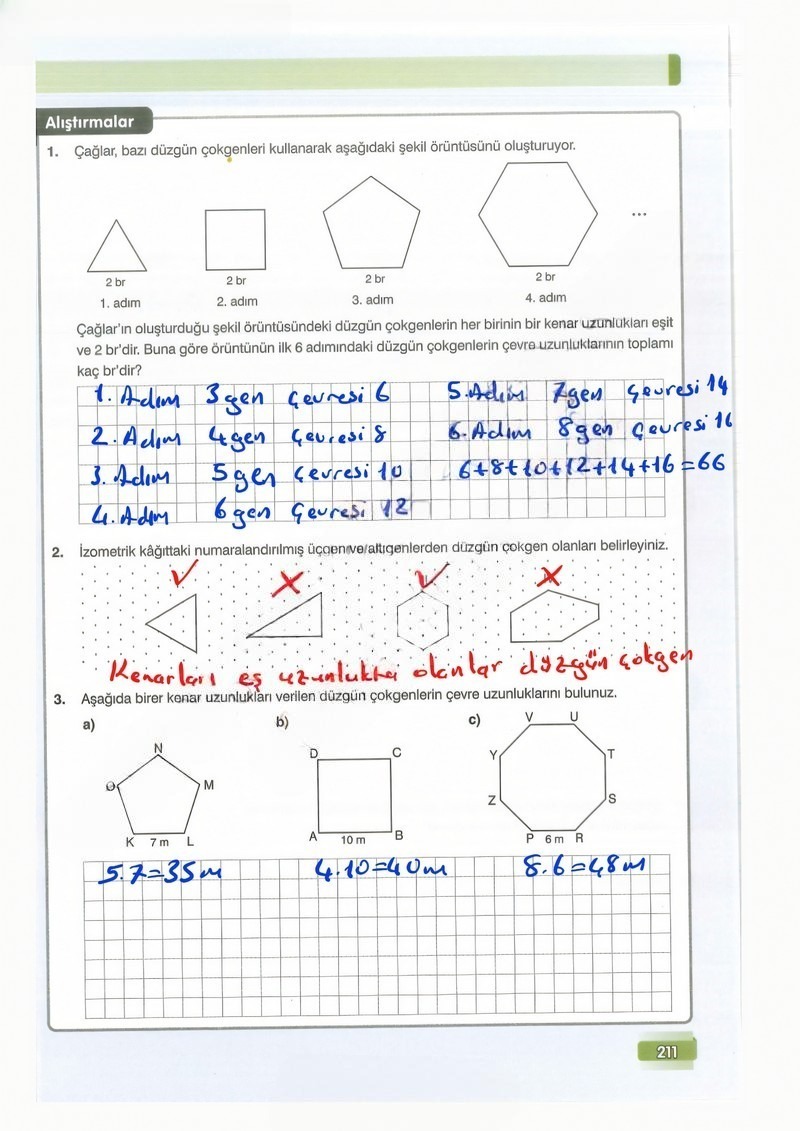 Alıştırmalar
1. Çağlar, bazı düzgün çokgenleri kullanarak aşağıdaki şekil örüntüsünü oluşturuyor.
...
2 br 2 br 2 br 2 br
1. adım 2. adım 3. adım 4. adım
Çağlar'ın oluşturduğu şekil örüntüsündeki düzgün çokgenlerin her birinin bir kenar uzunlukları eşit
ve 2 br'dir. Buna göre örüntünün ilk 6 adımındaki düzgün çokgenlerin çevre uzunluklarının toplamı
kaç br'dir?
1. Adım 3gen Çevresi 6 5. Adım 7gen Çevresi 14
2. Adım 4gen Çevresi 8 6. Adım 8gen Çevresi 16
3. Adım 5gen Çevresi 10 6+8+10+12+14+16=66
4. Adım 6gen Çevresi 12
2. İzometrik kâğıttaki numaralandırılmış üçgen ve altıgenlerden düzgün çokgen olanları belirleyiniz.
Kenarları eş uzunlukta olanlar düzgün çokgen
3. Aşağıda birer kenar uzunlukları verilen düzgün çokgenlerin çevre uzunluklarını bulunuz.
a) b) c)
N
O M
K 7 m L
D C
A 10 m B
V U
Y T
Z S
P 6 m R
5.7=35m 4.10=40m 8.6=48m
211